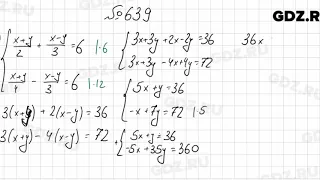 №639
GDZ.RU
{ (x+y)/2 + (x-y)/3 = 6 |·6
(x+y)/4 - (x-y)/3 = 6 |·12
3(x+y) + 2(x-y) = 36
3(x+y) - 4(x-y) = 72
{ 3x+3y + 2x-2y = 36
3x+3y - 4x+4y = 72
{ 5x + y = 36
-x + 7y = 72 |·5
+ { 5x + y = 36
-5x + 35y = 360
36x